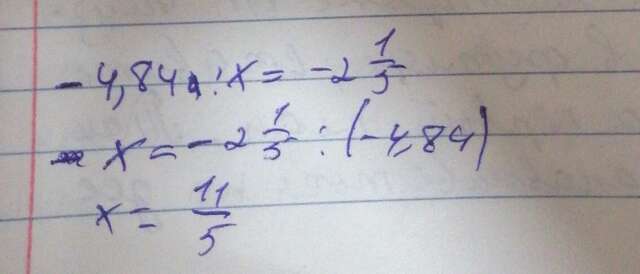 - 4,84 : x = -2 1/5
x = -2 1/5 : (-4,84)
x = 11/5